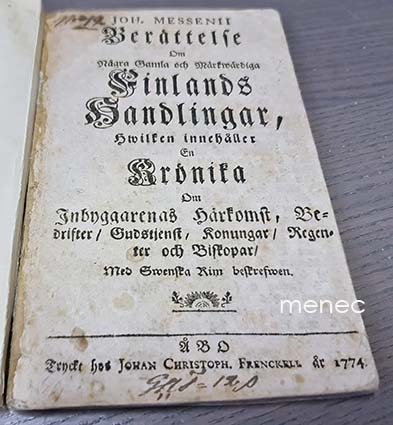 JOH. MESSENII
Berättelse
Om
Några Gamla och Märkwärdiga
Finlands
Handlingar,
Hwilken innehåller
En
Krönika
Om
Inbyggarenas Härkomst, Be-
drifter/ Gudstjenst, Konungar/ Regen-
ter och Biskopar/
Med Swenska Rim beskrefwen.
menec
ÅBO
Tryckt hos JOHAN CHRISTOPH. FRENCKELL år 1774.